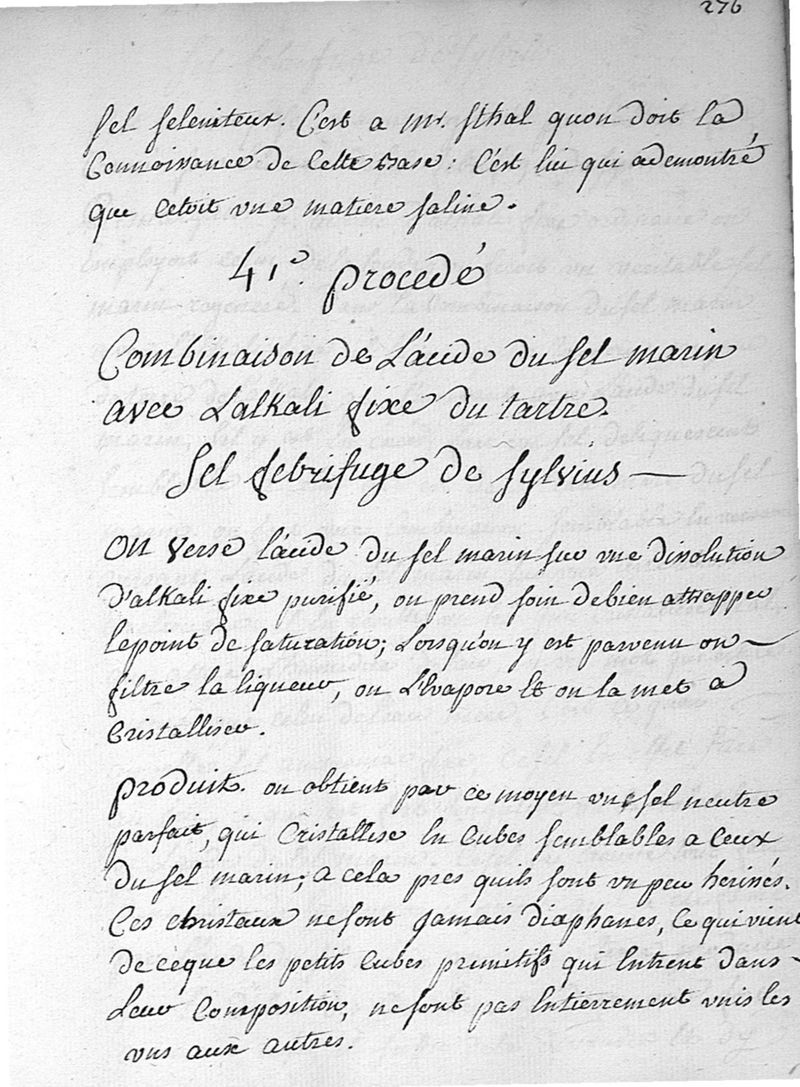 276
sel seleniteux. C'est a mr. Sthal quon doit la
Connoissance de Cette Base : C'est lui qui ademontré
que Cetoit vne matiere saline.
41e. procedé
Combinaison de L'ácide du sel marin
avec Lalkali fixe du tartre.
Sel febrifuge de Sylvius —
On verse lácide du sel marin sur vne dissolution
D'alkali fixe purifié, on prend soin debien attrapper
lepoint de saturation; Lorsqu'on y est parvenu on —
filtre la liqueur, on L'Evapore Et on la met a
Cristalliser.
produit. on obtient par ce moyen vn sel neutre
parfait, qui Cristallise En Cubes semblables a Ceux
du sel marin; a cela pres quils sont vn peu herissés.
Ces christaux ne sont jamais diaphanes, Ce qui vient
de ceque les petits Cubes primitifs qui Entrent dans —
Leur Composition, ne sont pas Entierrement vnis les
vns aux autres.